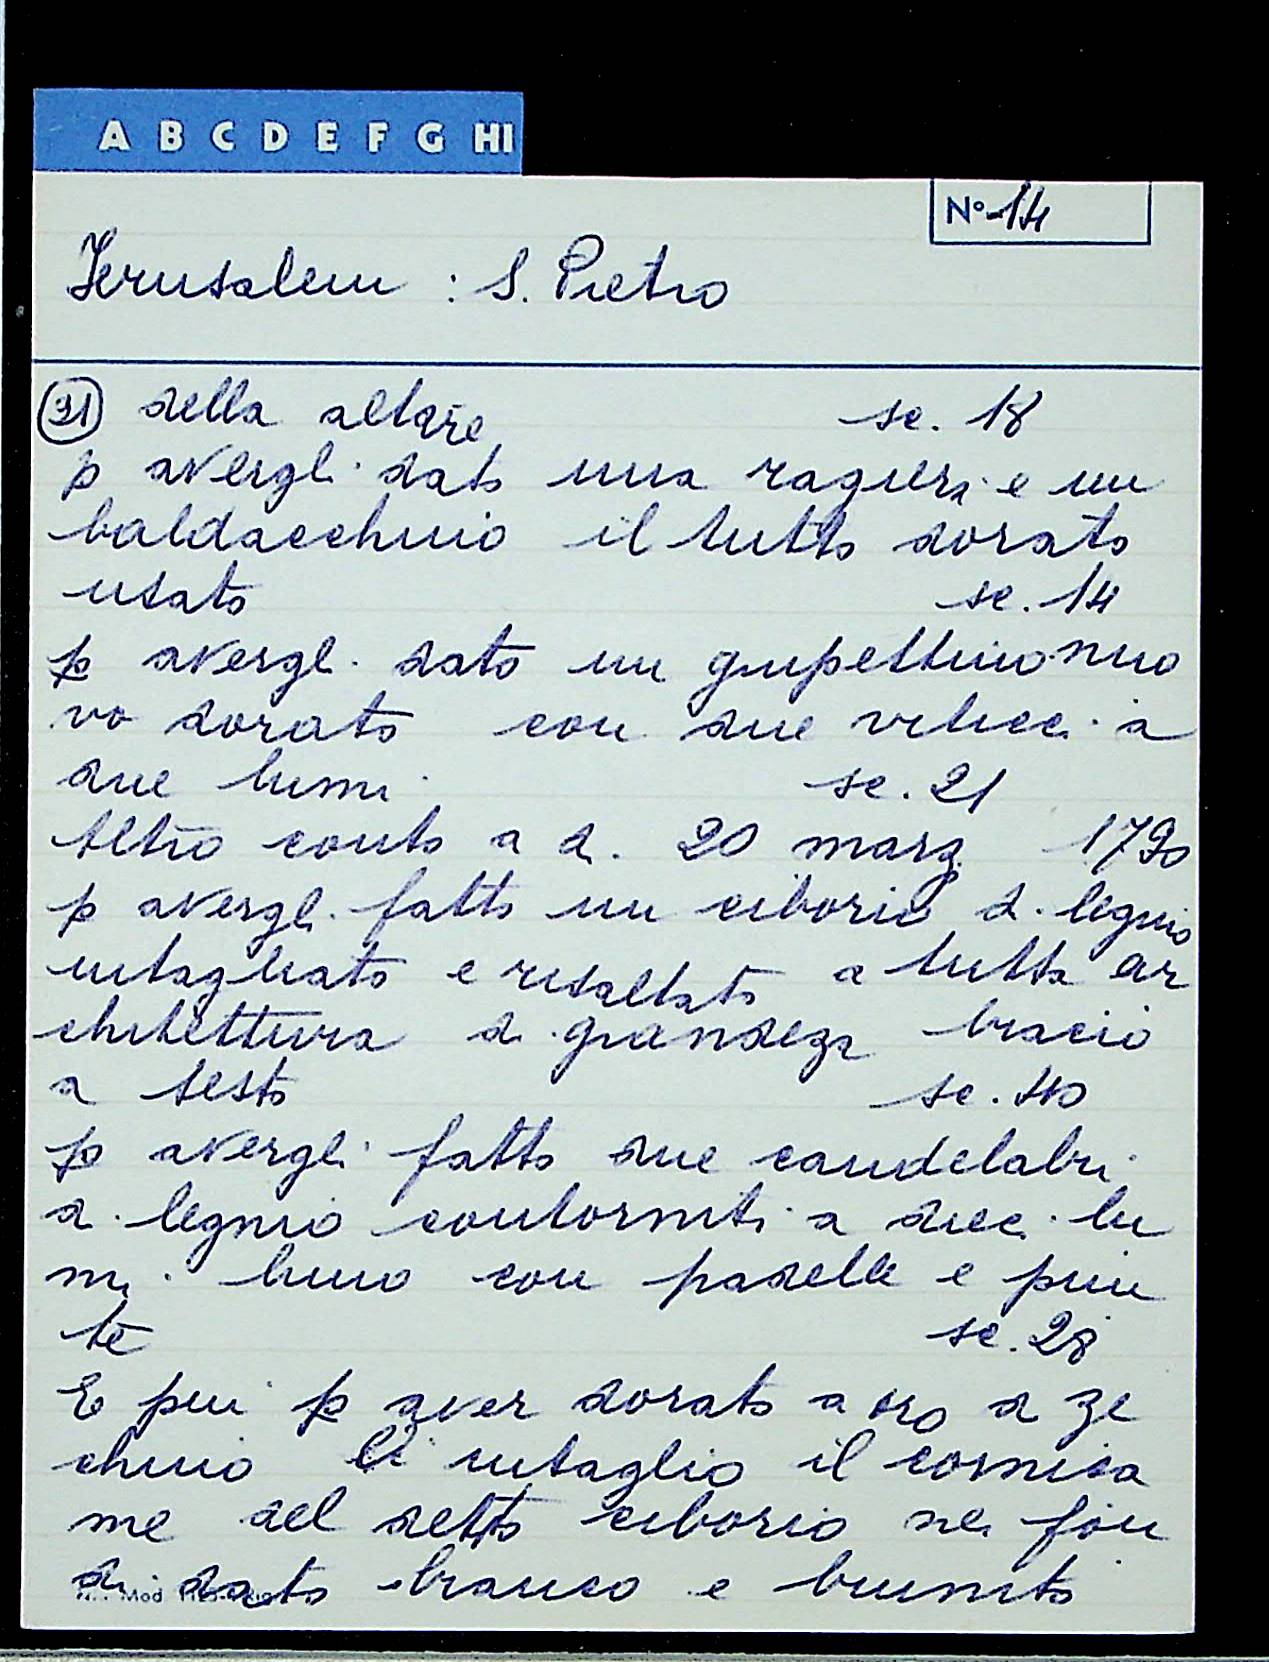 A B C D E F G HI
Nº 14
Jerusalem : S. Pietro
(21) della altare sc. 18
p avergli dato una ragiera e un
baldacchino il tutto dorato
usato sc. 14
p avergli dato un grupettino nuo
vo dorato con due viticci a
due lumi sc. 21
Altro conto a di 20 marz 1790
p avergli fatto un ciborio di legnio
intagliato e risaltato a tutta ar
chitettura di grandeza bracio
a sesto sc. 40
p avergli fatto due candelabri
di legnio contorniti a dieci lu
mi luno con padelle e piun
te sc. 28
E piu p aver dorato a oro di ze
chino li intaglio il cornicia
me del detto ciborio nei fon
di dato bianco e brunito